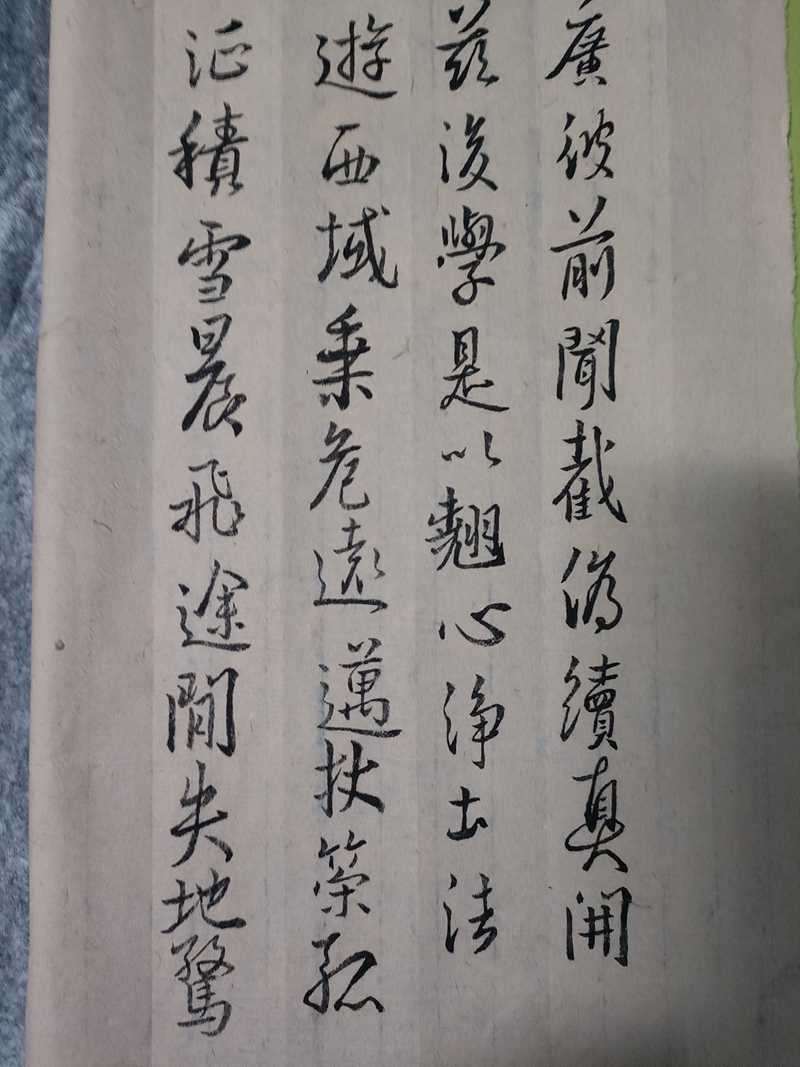 廣彼前聞截偽續真開
茲後學是以翹心淨土法
遊西域乗危遠邁扙策孤
征積雪晨飛途閒失地驚